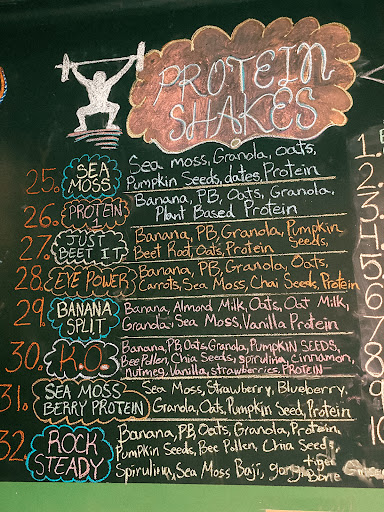 PROTEIN
SHAKES
25. SEA MOSS Sea moss, Granola, oats,
Pumpkin Seeds, dates, Protein
26. PROTEIN I Banana, PB, Oats, Granola,
Plant Based Protein
27. JUST BEET IT Banana, PB, Granola, Pumpkin Seeds,
Beet Root, Oats, Protein
28. EYE POWER Banana, PB, Granola, Oats,
Carrots, Sea Moss, Chai Seeds, Protein
29. BANANA SPLIT Banana, Almond Milk, Oats, Oat Milk,
Granola, Sea Moss, Vanilla Protein
30. K.O. Banana, PB, Oats, Granola, PUMPKIN SEEDS,
Bee Pollen, Chia Seeds, spirulina, cinnamon,
nutmeg, Vanilla, strawberries, PROTEIN
31. SEA MOSS BERRY PROTEIN Sea Moss, Strawberry, Blueberry,
Granola, Oats, Pumpkin Seed, Protein
32. ROCK STEADY Banana, PB, Oats, Granola, Protein,
Pumpkin Seeds, Bee Pollen, Chia Seed
Spirulina, Sea Moss Baji, tiger bone
1.
2.
3.
4.
5
6
7
8
9
10